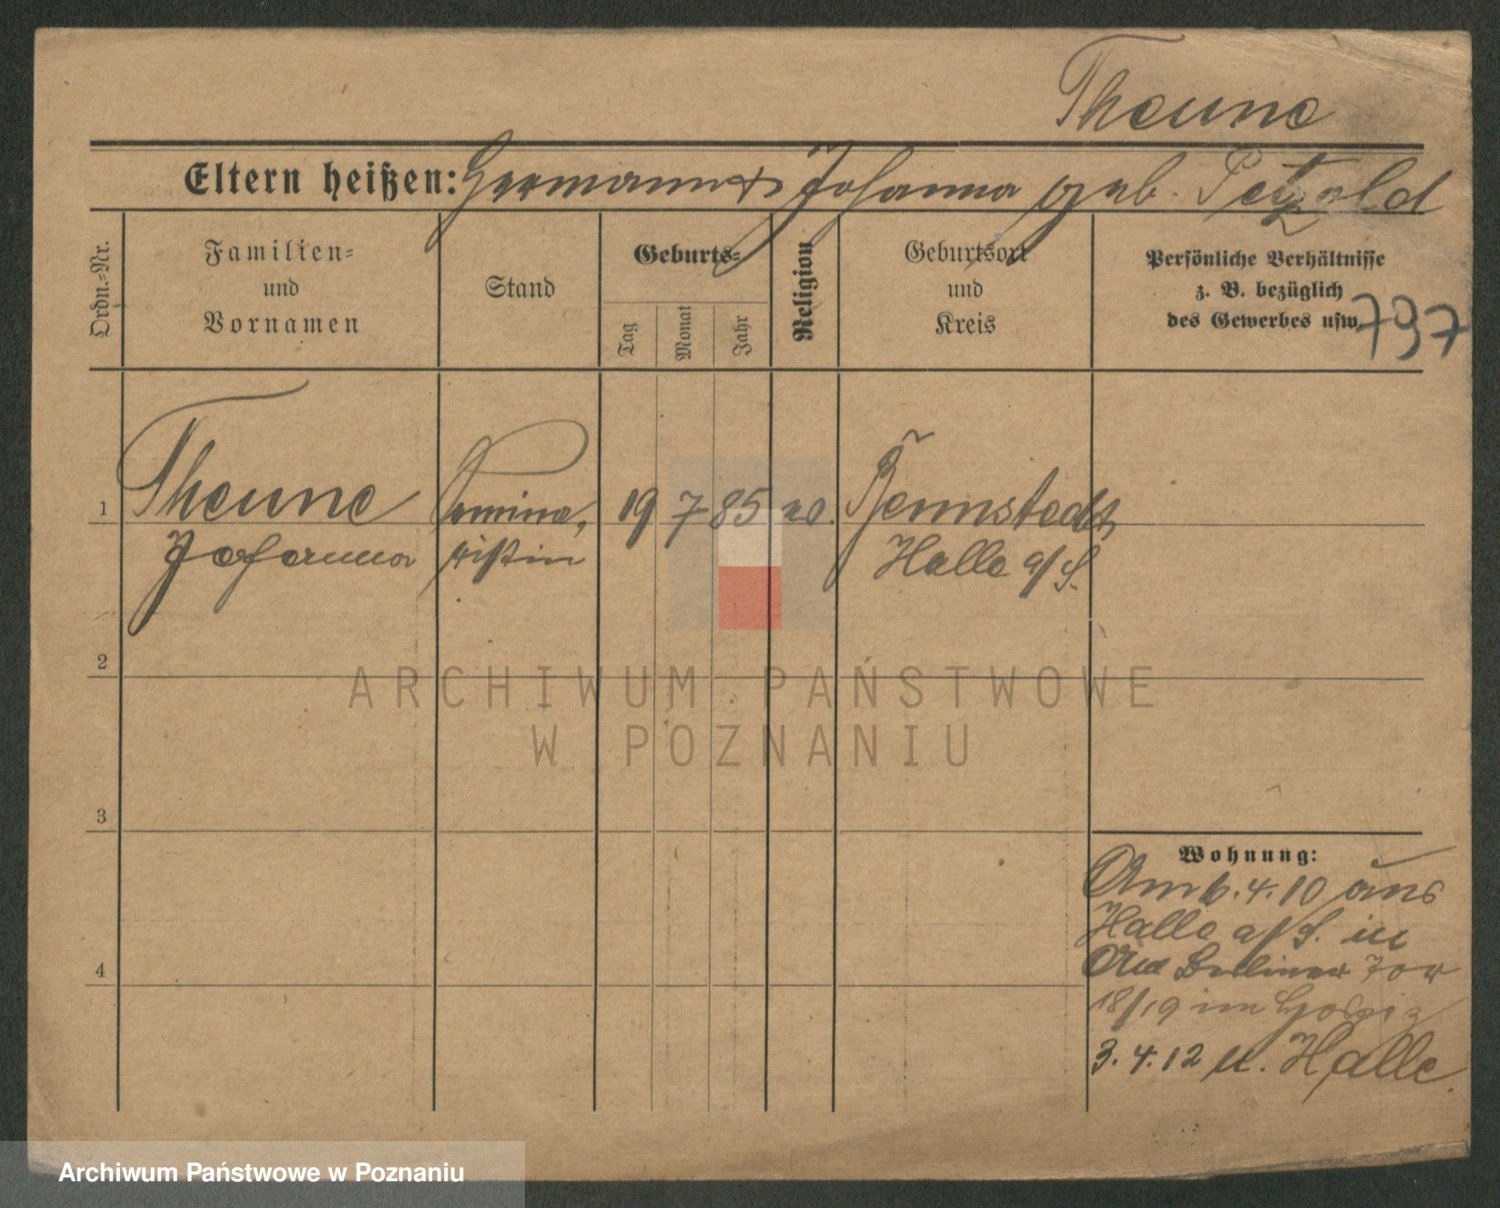 Theune
Eltern heißen: Hermann & Johanna geb. Petzold
Ordn.-Nr.
Familien-
und
Vornamen
Stand
Geburts-
Tag
Monat
Jahr
Religion
Geburtsort
und
Kreis
Persönliche Verhältnisse
z. B. bezüglich
des Gewerbes usw.
797
1 Theune Semina, 19 7 85 ev. Bennstedt
Johanna ristin Halle a/S.
2
3
4
Wohnung:
Am 6.4.10 aus
Halle a/S. in
Am Berliner Tor
18/19 im Hospiz
3.4.12 n. Halle.
ARCHIWUM PAŃSTWOWE
W POZNANIU
Archiwum Państwowe w Poznaniu